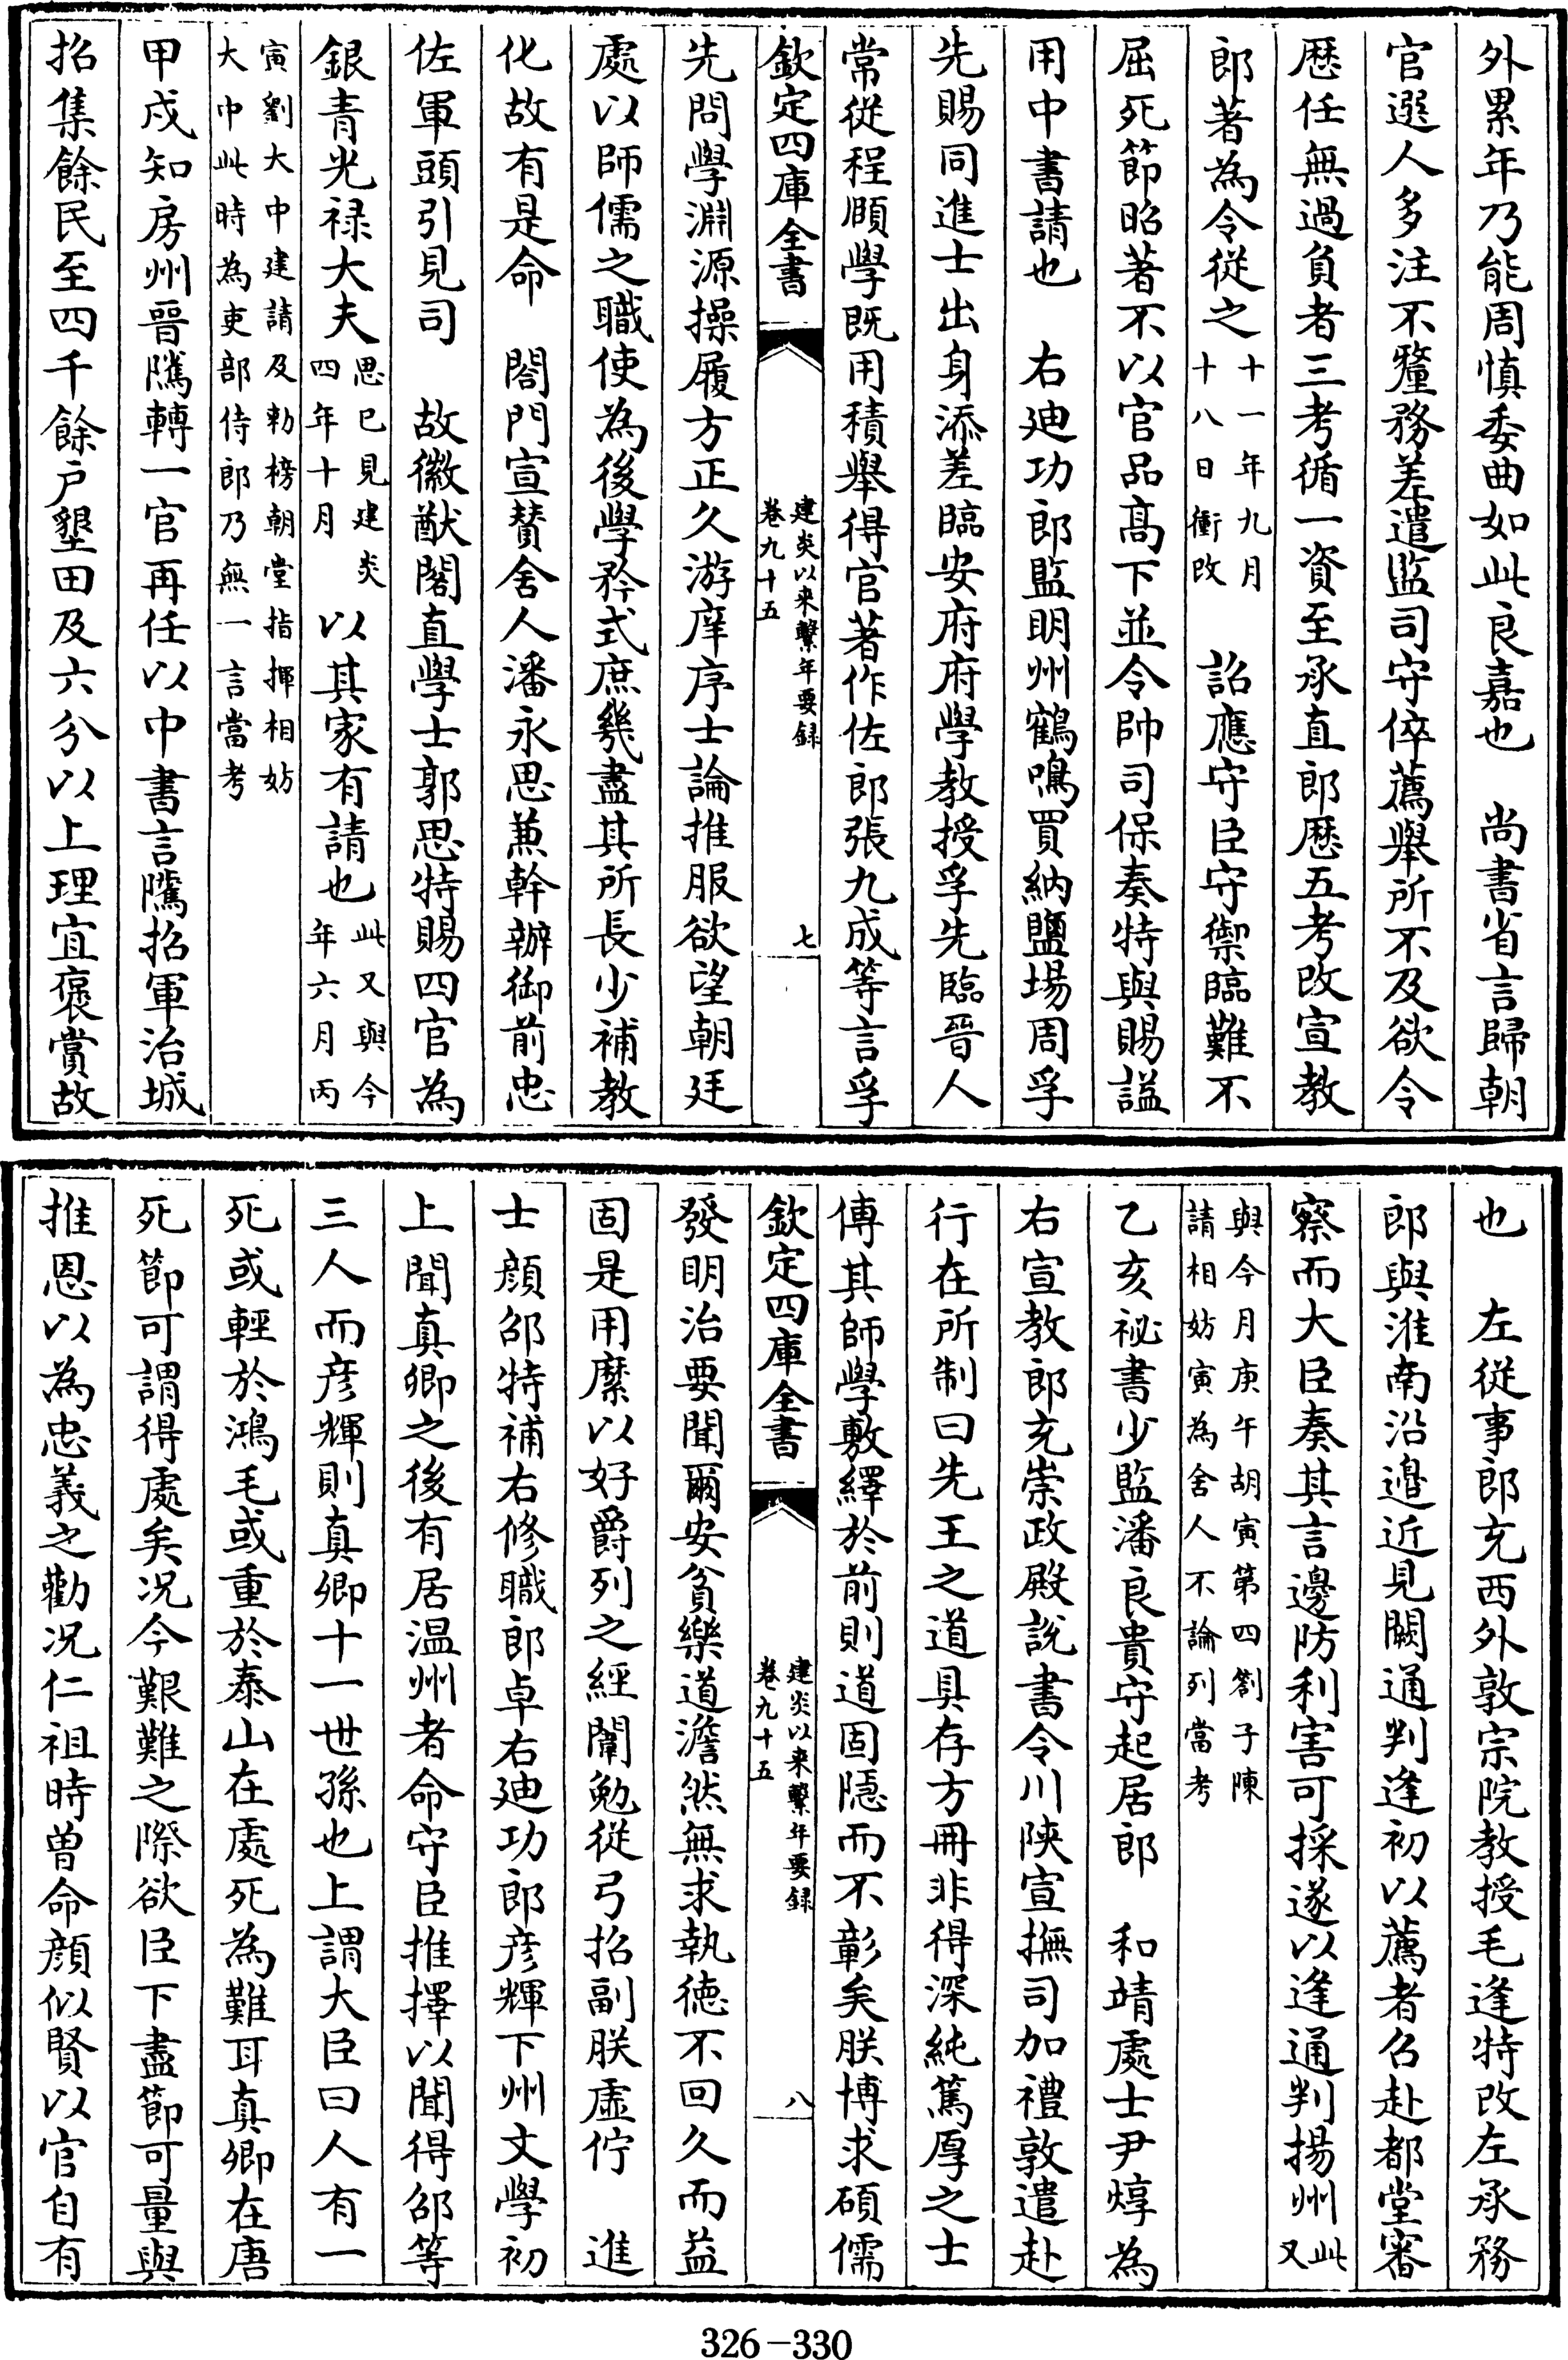 外累年乃能周慎委曲如此良嘉也　尚書省言歸朝
官選人多注不釐務差遣監司守倅薦舉所不及欲令
歴任無過負者三考循一資至承直郎歴五考改宣教
郎著為令從之十一年九月十八日衝改　詔應守臣守禦臨難不
屈死節昭著不以官品髙下並令帥司保奏特與賜諡
用中書請也　右廸功郎監明州鶴鳴買納鹽場周孚
先賜同進士出身添差臨安府府學教授孚先臨晉人
常從程頤學既用積舉得官著作佐郎張九成等言孚
欽定四庫全書　建炎以來繫年要録　卷九十五　七
先問學淵源操履方正久游庠序士論推服欲望朝廷
處以師儒之職使為後學矜式庶㡬盡其所長少補教
化故有是命　閤門宣賛舍人潘永思兼幹辦御前忠
佐軍頭引見司　故徽猷閣直學士郭思特賜四官為
銀青光禄大夫思已見建炎四年十月　以其家有請也此又與今年六月丙
寅劉大中建請及勅榜朝堂指揮相妨大中此時為吏部侍郎乃無一言當考
甲戌知房州晉隲轉一官再任以中書言隲招軍治城
招集餘民至四千餘户墾田及六分以上理宜褒賞故
也　左從事郎充西外敦宗院教授毛逢特改左承務
郎與淮南沿邉近見闕通判逢初以薦者召赴都堂審
察而大臣奏其言邊防利害可採遂以逢通判揚州此又
與今月庚午胡寅第四劄子陳請相妨寅為舍人不論列當考
乙亥祕書少監潘良貴守起居郎　和靖處士尹焞為
右宣教郎充崇政殿說書令川陜宣撫司加禮敦遣赴
行在所制曰先王之道具存方冊非得深純篤厚之士
傳其師學敷繹於前則道固隱而不彰矣朕博求碩儒
欽定四庫全書　建炎以來繫年要録　卷九十五　八
發明治要聞爾安貧樂道澹然無求執德不回久而益
固是用縻以好爵列之經闈勉從弓招副朕虛佇　進
士顔邵特補右修職郎卓右廸功郎彦輝下州文學初
上聞真卿之後有居温州者命守臣推擇以聞得邵等
三人而彦輝則真卿十一世孫也上謂大臣曰人有一
死或輕於鴻毛或重於泰山在處死為難耳真卿在唐
死節可謂得處矣况今艱難之際欲臣下盡節可量與
推恩以為忠義之勸况仁祖時曽命顔似賢以官自有
326-330